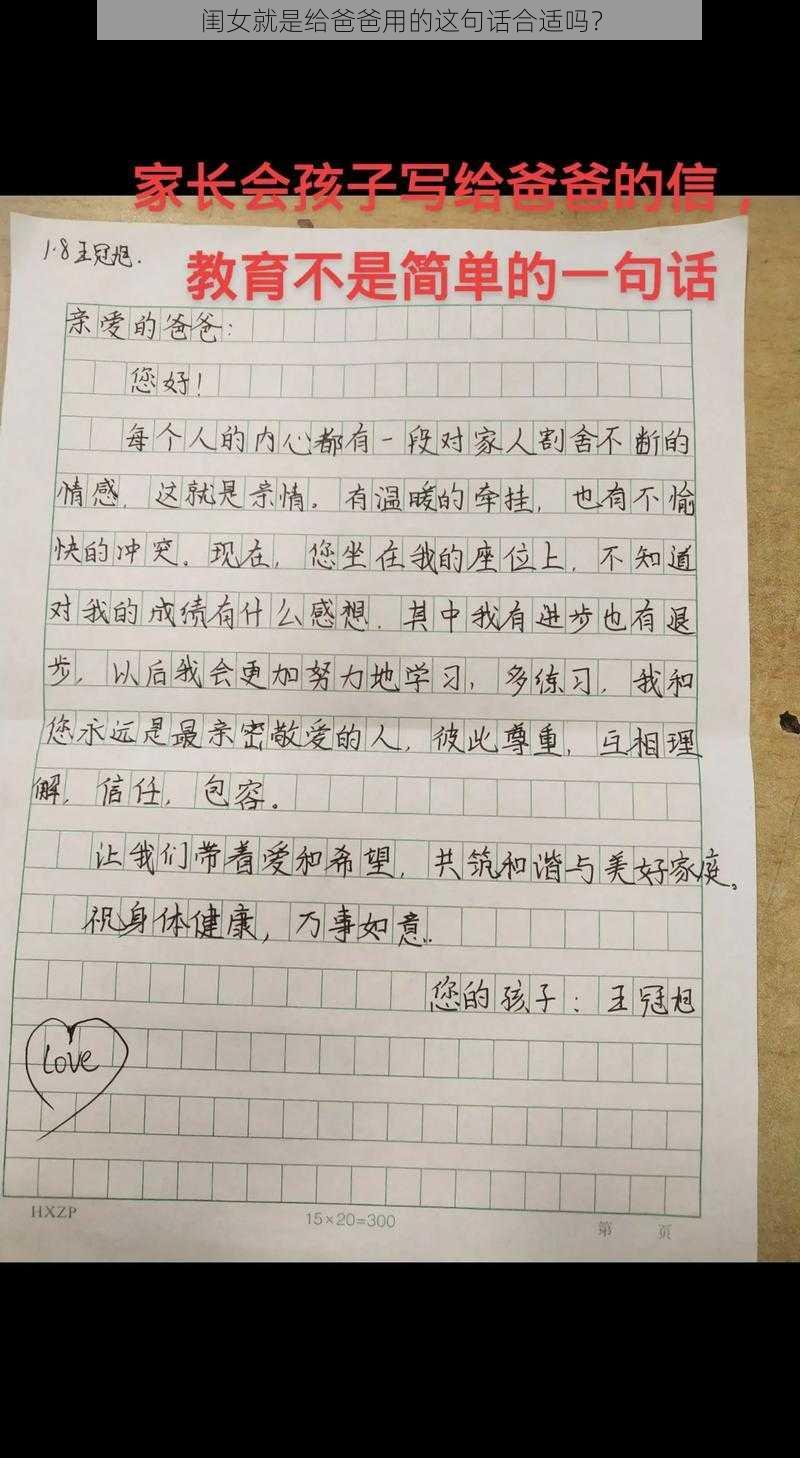 闺女就是给爸爸用的这句话合适吗？
家长会孩子写给爸爸的信，
教育不是简单的一句话
1·8 王冠旭.
亲爱的爸爸：
您好！
每个人的内心都有一段对家人割舍不断的
情感，这就是亲情。有温暖的牵挂，也有不愉
快的冲突。现在，您坐在我的座位上，不知道
对我的成绩有什么感想，其中我有进步也有退
步，以后我会更加努力地学习，多练习，我和
您永远是最亲密敬爱的人，彼此尊重，互相理
解，信任，包容。
让我们带着爱和希望，共筑和谐与美好家庭。
祝身体健康，万事如意.
您的孩子：王冠旭
Love
HXZP
15×20=300
第 页